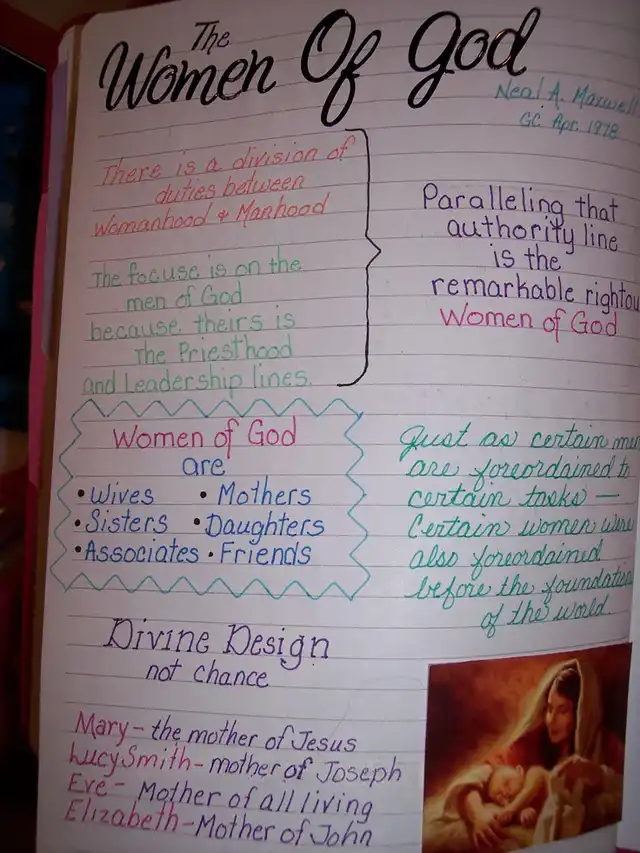 The
Women Of God
Neal A. Maxwell
GC Apr. 1978
There is a division of
duties between
Womanhood & Manhood
The focuse is on the
men of God
because theirs is
The Priesthood
and Leadership lines.
Paralleling that
authority line
is the
remarkable rightou
Women of God
Women of God
are
• Wives • Mothers
• Sisters • Daughters
• Associates • Friends
Just as certain men
are foreordained to
certain tasks —
Certain women were
also foreordained
before the foundation
of the world.
Divine Design
not chance
Mary - the mother of Jesus
Lucy Smith - mother of Joseph
Eve - Mother of all living
Elizabeth - Mother of John